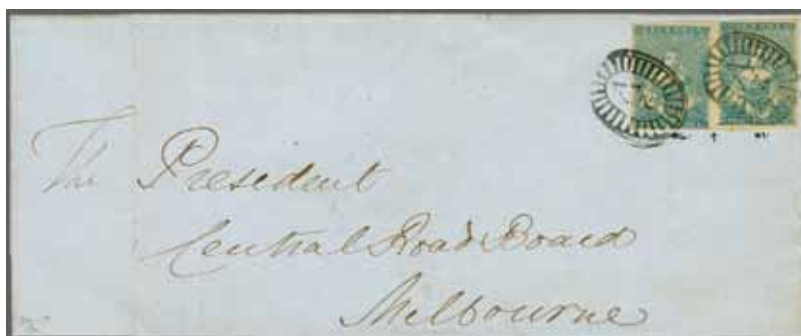 The President
Central Road Board
Melbourne